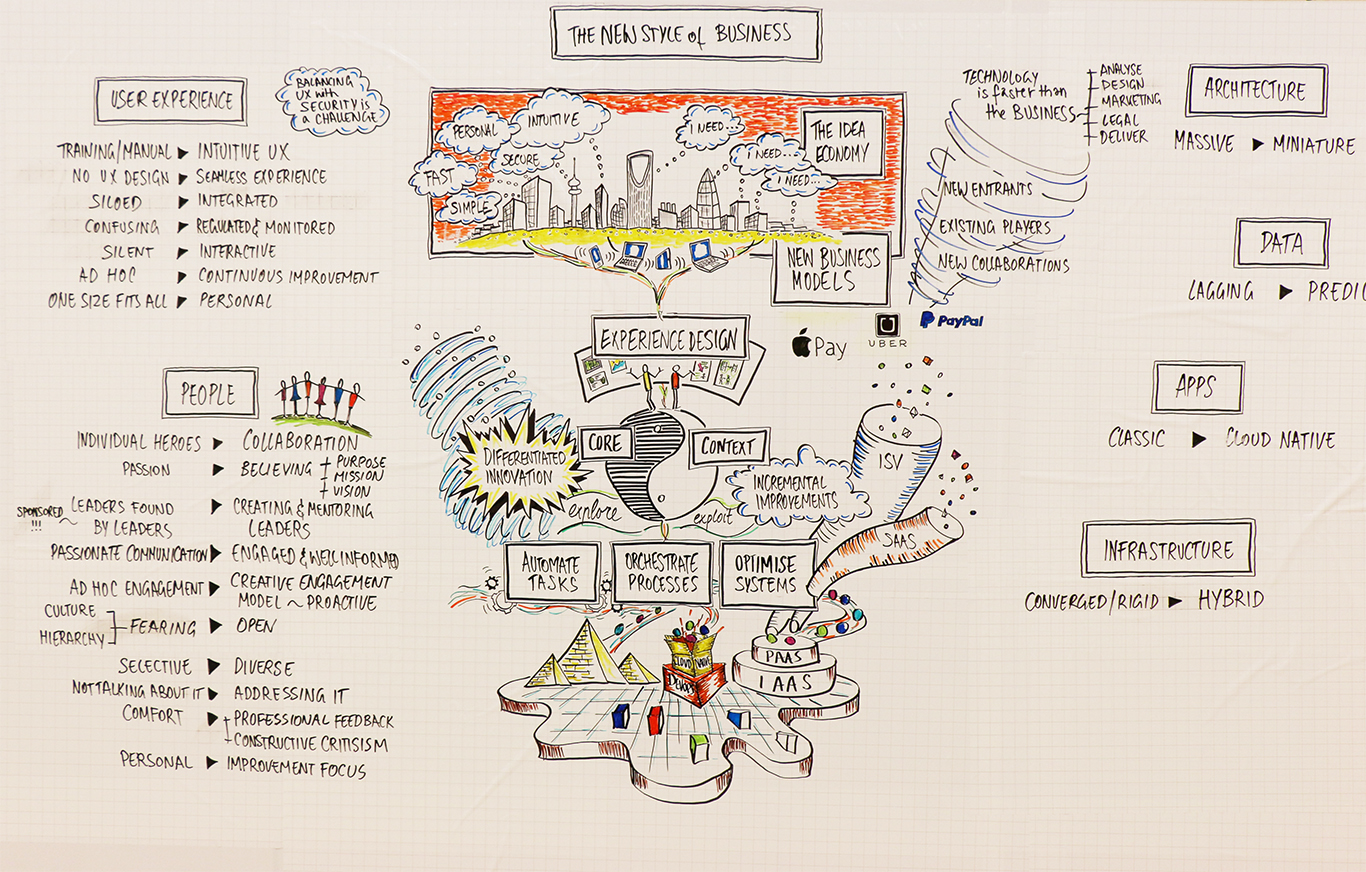 THE NEW STYLE of BUSINESS
USER EXPERIENCE
BALANCING
UX with
SECURITY is
a CHALLENGE
TRAINING/MANUAL ▶ INTUITIVE UX
NO UX DESIGN ▶ SEAMLESS EXPERIENCE
SILOED ▶ INTEGRATED
CONFUSING ▶ REGULATED & MONITORED
SILENT ▶ INTERACTIVE
AD HOC ▶ CONTINUOUS IMPROVEMENT
ONE SIZE FITS ALL ▶ PERSONAL
PEOPLE
INDIVIDUAL HEROES ▶ COLLABORATION
PASSION ▶ BELIEVING
PURPOSE
MISSION
VISION
SPONSORED
!!!
LEADERS FOUND ▶ CREATING & MENTORING
BY LEADERS LEADERS
PASSIONATE COMMUNICATION ▶ ENGAGED & WELL INFORMED
AD HOC ENGAGEMENT ▶ CREATIVE ENGAGEMENT
MODEL ~ PROACTIVE
CULTURE
HIERARCHY
FEARING ▶ OPEN
SELECTIVE ▶ DIVERSE
NOT TALKING ABOUT IT ▶ ADDRESSING IT
COMFORT ▶ + PROFESSIONAL FEEDBACK
- CONSTRUCTIVE CRITISISM
PERSONAL ▶ IMPROVEMENT FOCUS
PERSONAL
INTUITIVE
SECURE
FAST
SIMPLE
I NEED...
I NEED...
I NEED...
THE IDEA
ECONOMY
NEW BUSINESS
MODELS
EXPERIENCE DESIGN
Pay
UBER
PayPal
CORE
CONTEXT
DIFFERENTIATED
INNOVATION
INCREMENTAL
IMPROVEMENTS
explore
exploit
AUTOMATE
TASKS
ORCHESTRATE
PROCESSES
OPTIMISE
SYSTEMS
ISV
SAAS
CLOUD NATIVE
DEVOPS
PAAS
IAAS
TECHNOLOGY
is faster than
the BUSINESS
ANALYSE
DESIGN
MARKETING
LEGAL
DELIVER
NEW ENTRANTS
EXISTING PLAYERS
NEW COLLABORATIONS
ARCHITECTURE
MASSIVE ▶ MINIATURE
DATA
LAGGING ▶ PREDIC
APPS
CLASSIC ▶ CLOUD NATIVE
INFRASTRUCTURE
CONVERGED/RIGID ▶ HYBRID